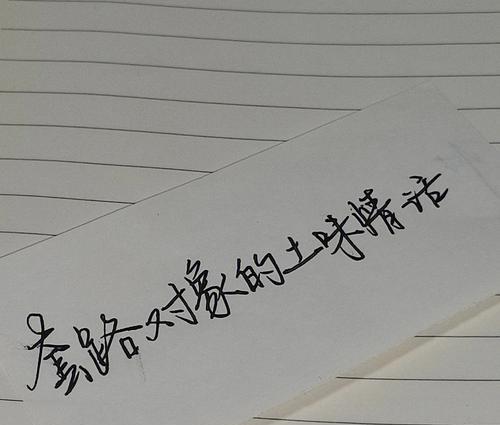 套路对象的土味情话